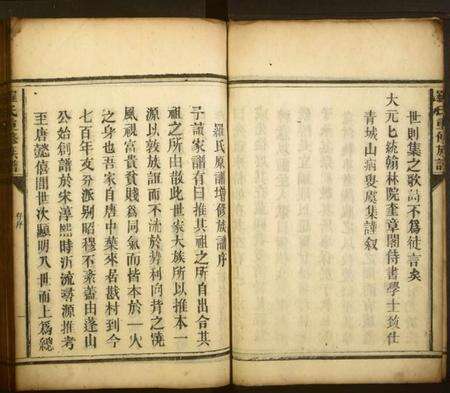 羅氏重修族譜
世則集之歌詩不為徒言矣
大元七統翰林院奎章閣侍書學士致仕
青城山病叟虞集謹叙
羅氏原譜增修族譜序
予讀家譜有曰推其祖之所自出合其
祖之所由散此世家大族所以推本一
源以敦族誼而不流於勢利向背之澆
風視富貴貧賤為同氣而皆本於一人
之身也吾家自唐中葉來者戡村到今
七百年支分派別昭穆不紊蓋由逢山
公始創譜於宋淳熙時泝流尋源推考
至唐懿僖間世次顯明八世而上為總
羅氏重修族譜
序